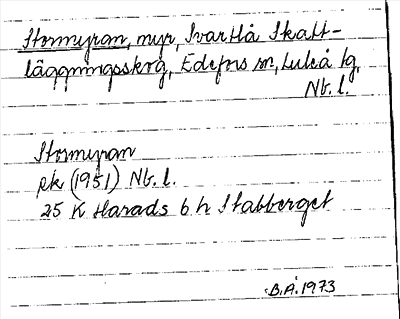 Stormyran, myr, Svartlå Skatt-
läggningsskog, Edefors sn, Luleå tg,
Nb. l.
Stormyran
pk (1951) Nb. l.
25 K Harads 6 h Stabberget
B.Å. 1973